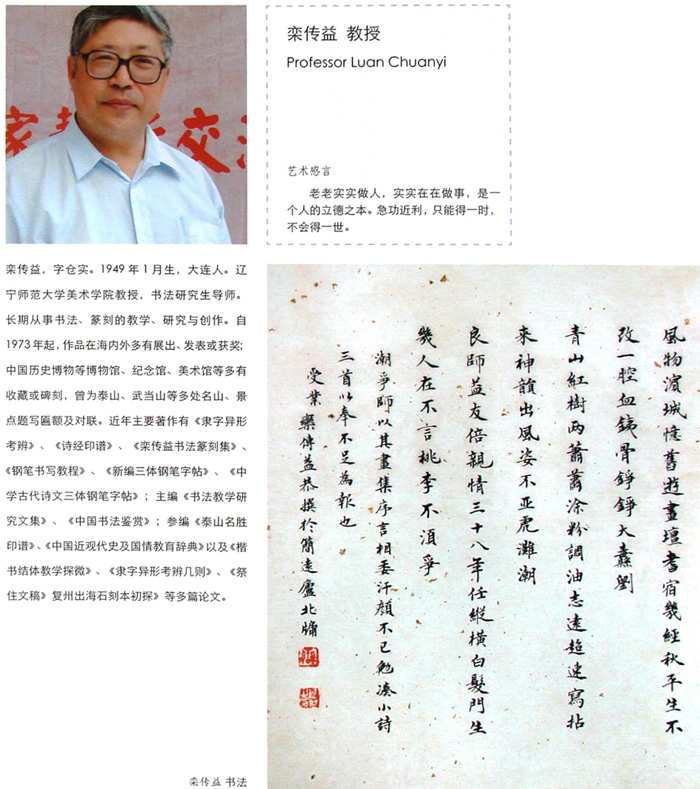 栾传益 教授
Professor Luan Chuanyi
艺术感言
老老实实做人，实实在在做事，是一
个人的立德之本。急功近利，只能得一时，
不会得一世。
栾传益，字仓实。1949 年 1 月生，大连人。辽
宁师范大学美术学院教授，书法研究生导师。
长期从事书法、篆刻的教学、研究与创作。自
1973 年起，作品在海内外多有展出、发表或获奖；
中国历史博物等博物馆、纪念馆、美术馆等多有
收藏或碑刻，曾为泰山、武当山等多处名山、景
点题写匾额及对联。近年主要著作有《隶字异形
考辨》、《诗经印谱》、《栾传益书法篆刻集》、
《钢笔书写教程》、《新编三体钢笔字帖》、《中
学古代诗文三体钢笔字帖》；主编《书法教学研
究文集》、《中国书法鉴赏》；参编《泰山名胜
印谱》、《中国近观代史及国情教育辞典》以及《楷
书结体教学探微》、《隶字异形考辨几则》、《祭
住文稿》复州出海石刻本初探》等多篇论文。
風物濱城憶舊遊畫壇耆宿幾經秋平生不
改一腔血銕骨錚錚大纛劉
青山紅樹兩蕭蕭涂粉調油志遠超速寫拈
來神韻出風姿不亚虎灘潮
良師益友倍親情三十八年任縱橫白髮門生
幾人在不言桃李不須爭
潮爭師以其畫集序言相委汗顏不已勉湊小詩
三首以奉不足為報也
受業欒傳益恭撰於簡遠廬北牖
栾传益 书法